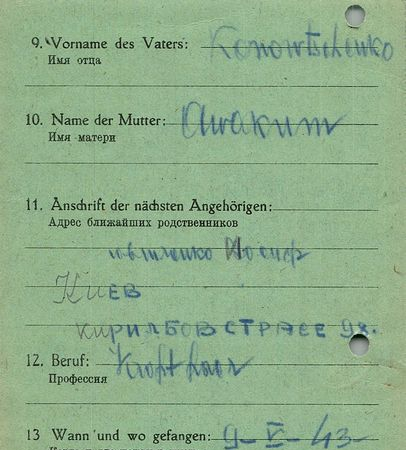 9. Vorname des Vaters: Konowtschenko
Имя отца
10. Name der Mutter: Awakum
Имя матери
11. Anschrift der nächsten Angehörigen:
Адрес ближайших родственников
Иосиф
Киев
12. Beruf:
Профессия
13 Wann und wo gefangen: 9-V-43-